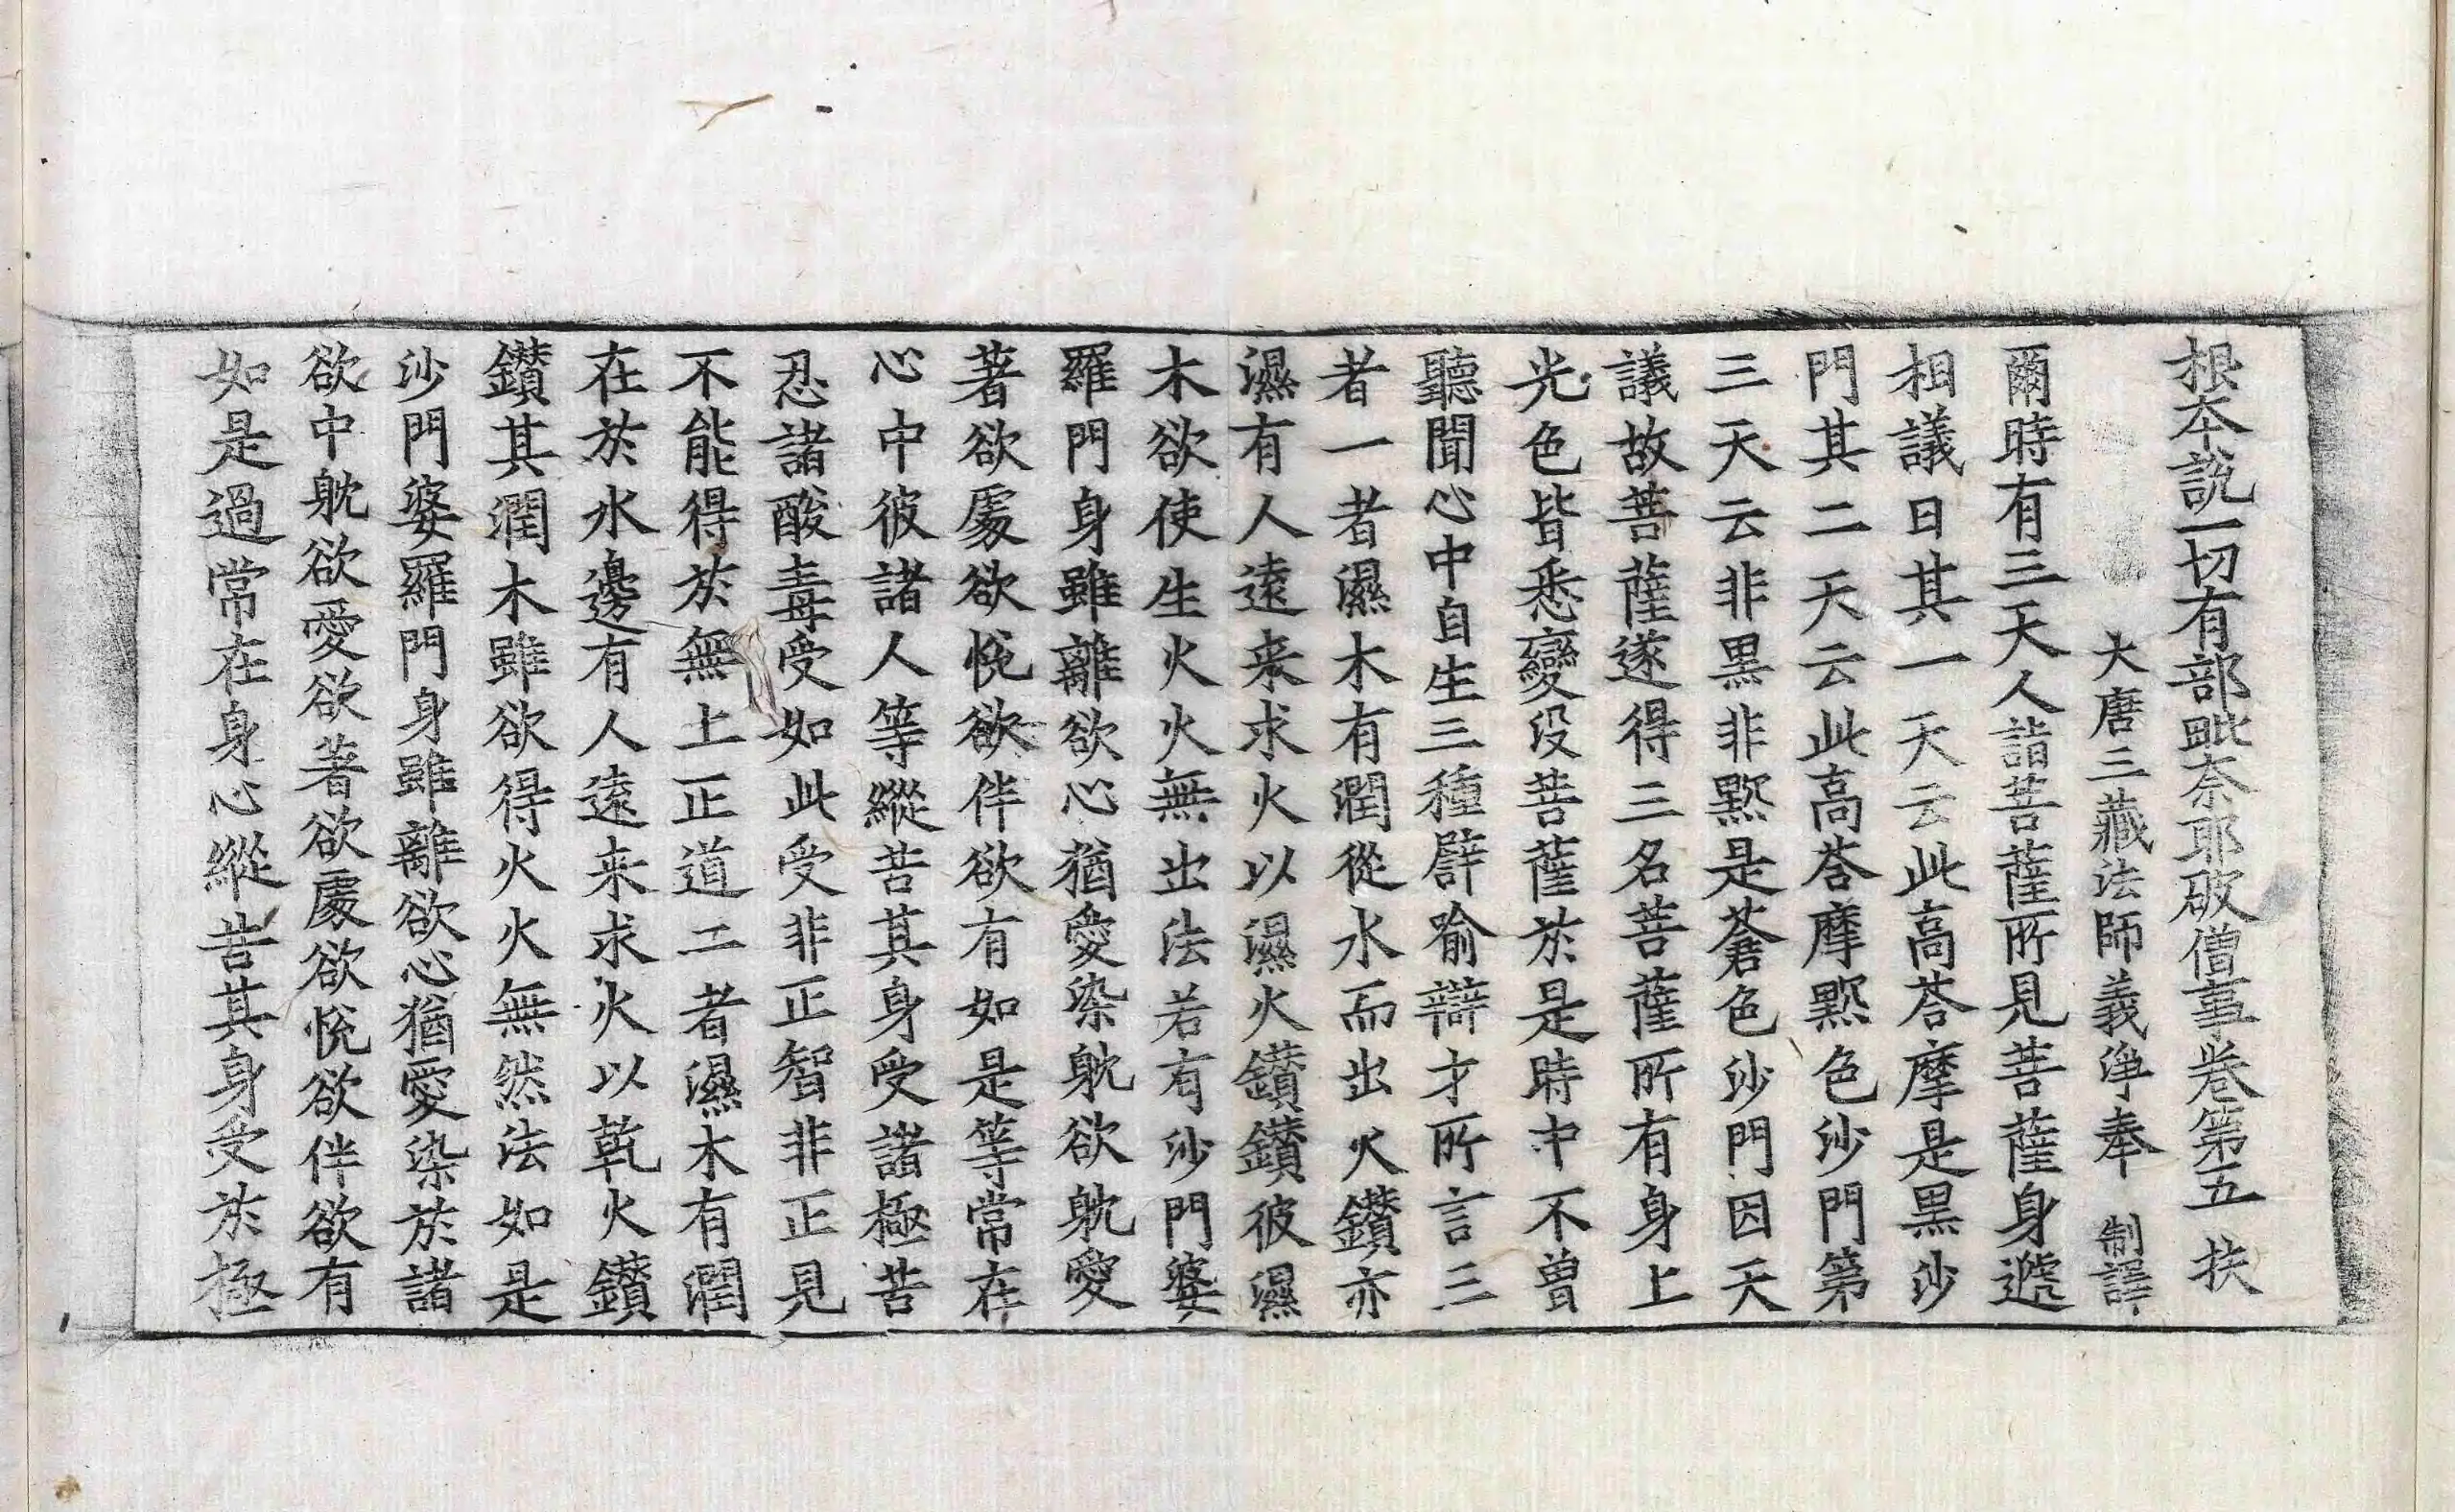 根本說一切有部毗奈耶破僧事卷第五 挾
大唐三藏法師義淨奉 制譯
爾時有三天人詣菩薩所見菩薩身遞
相議曰其一天云此高荅摩是黑沙
門其二天云此高荅摩黙色沙門第
三天云非黑非黙是蒼色沙門因天
議故菩薩遂得三名菩薩所有身上
光色皆悉變没菩薩於是時中不曾
聽聞心中自生三種譬喻辯才所言三
者一者濕木有潤從水而出火鑽亦
濕有人遠来求火以濕火鑽鑽彼濕
木欲使生火火無出法若有沙門婆
羅門身雖離欲心猶愛染躭欲躭愛
著欲處欲悅欲伴欲有如是等常在
心中彼諸人等縱苦其身受諸極苦
忍諸酸毒受如此受非正智非正見
不能得於無上正道二者濕木有潤
在於水邊有人遠来求火以乾火鑽
鑽其潤木雖欲得火火無然法如是
沙門婆羅門身雖離欲心猶愛染於諸
欲中躭欲愛欲著欲處欲悅欲伴欲有
如是過常在身心縱苦其身受於極